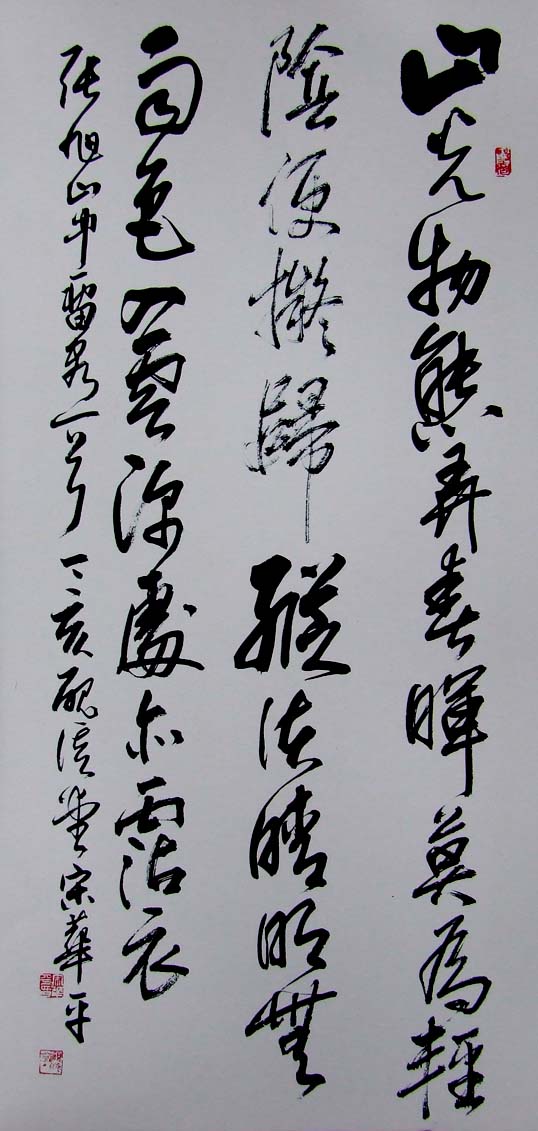 山光物態弄春暉莫為輕
陰便擬歸縱使晴明無
雨色入雲深處亦霑衣
張旭山中留客一首丁亥宋華平